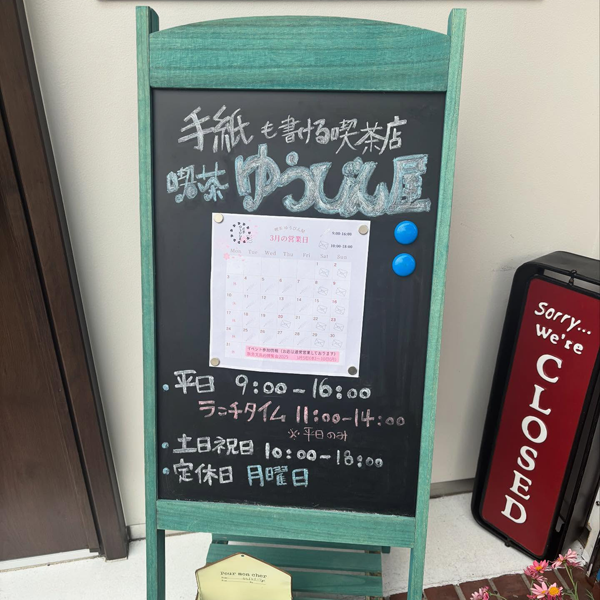 手紙も書ける喫茶店
喫茶ゆうびん屋
3月の営業日
9:00-16:00
10:00-18:00
Mon Tue Wed Thu Fri Sat Sun
・平日 9:00-16:00
ランチタイム 11:00-14:00
※平日のみ
・土日祝日 10:00-18:00
・定休日 月曜日
Sorry...
We're
CLOSED